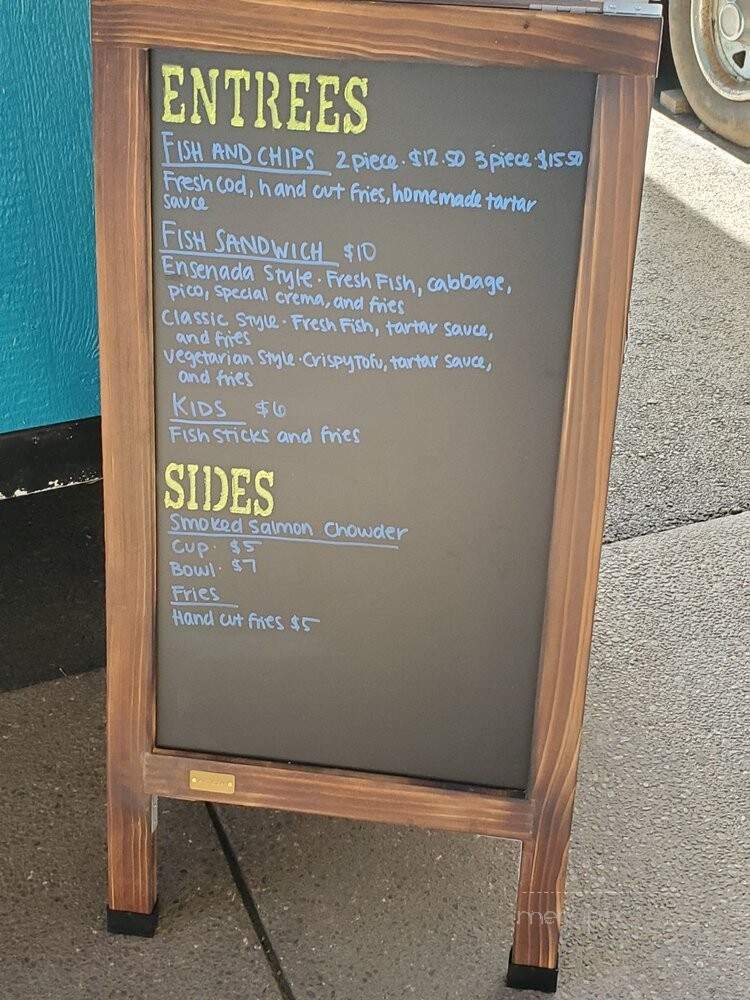 ENTREES
FISH AND CHIPS 2 piece · $12.50 3 piece · $15.50
Fresh cod, hand cut fries, homemade tartar
sauce
FISH SANDWICH $10
Ensenada Style · Fresh Fish, cabbage,
pico, special crema, and fries
Classic Style · Fresh Fish, tartar sauce,
and fries
Vegetarian Style · Crispy Tofu, tartar sauce,
and fries
KIDS $6
Fish sticks and fries
SIDES
Smoked Salmon Chowder
Cup · $5
Bowl · $7
Fries
Hand cut fries $5